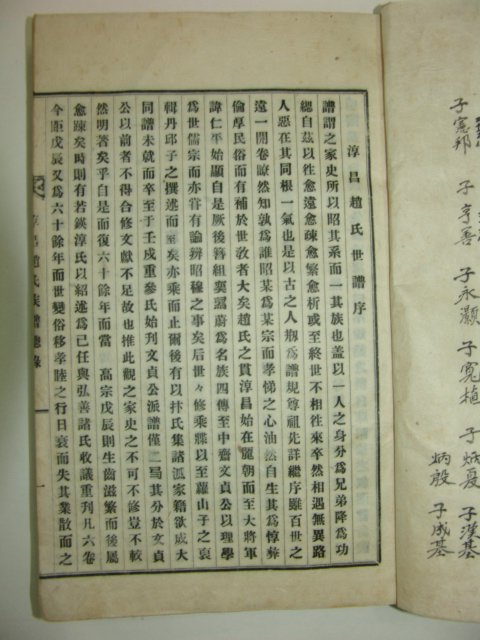 淳昌趙氏世譜序
譜謂之家史所以昭其系而一其族也蓋以一人之身分爲兄弟降爲功
緦自茲以徃愈遠愈疎愈繁愈析或至終世不相徃來卒然相遇無異路
人惡在其同根一氣也是以古之人剏爲譜規尊祖先詳繼序雖百世之
遠一開卷瞭然知孰爲誰昭某爲某宗而孝悌之心油然自生其爲惇彛
倫厚民俗而有補於世敎者大矣趙氏之貫淳昌始在麗朝而至大將軍
諱仁平始顯自是厥後簪組奕蔚爲名族四傳至中齋文貞公以理學
爲世儒宗而亦甞有論辨昭穆之事矣后世々修乘牒以至蘿山子之裒
輯丹邱子之撰述而至矣亦乘而止爾後有以抃氏集諸派家籍欲成大
同譜未就而卒至于壬戌重參氏始刋文貞公派譜僅二弓其分於文貞
公以前者不得合修文獻不足故也推此觀之家史之不可不修豈不較
然明著矣乎自是而復六十餘年而當　高宗戊辰則生齒滋繁而後屬
愈踈矣時則有若鍈淳氏以紹述爲己任與弘善諸氏收議重刋凡六卷
今距戊辰又爲六十餘年而世變俗移孝睦之行日衰而失其業散而之
淳昌趙氏族譜總錄
一
子憲邦　子亨善　子永灝　子冕植　子炳夏　子漢基
炳殷　子成基